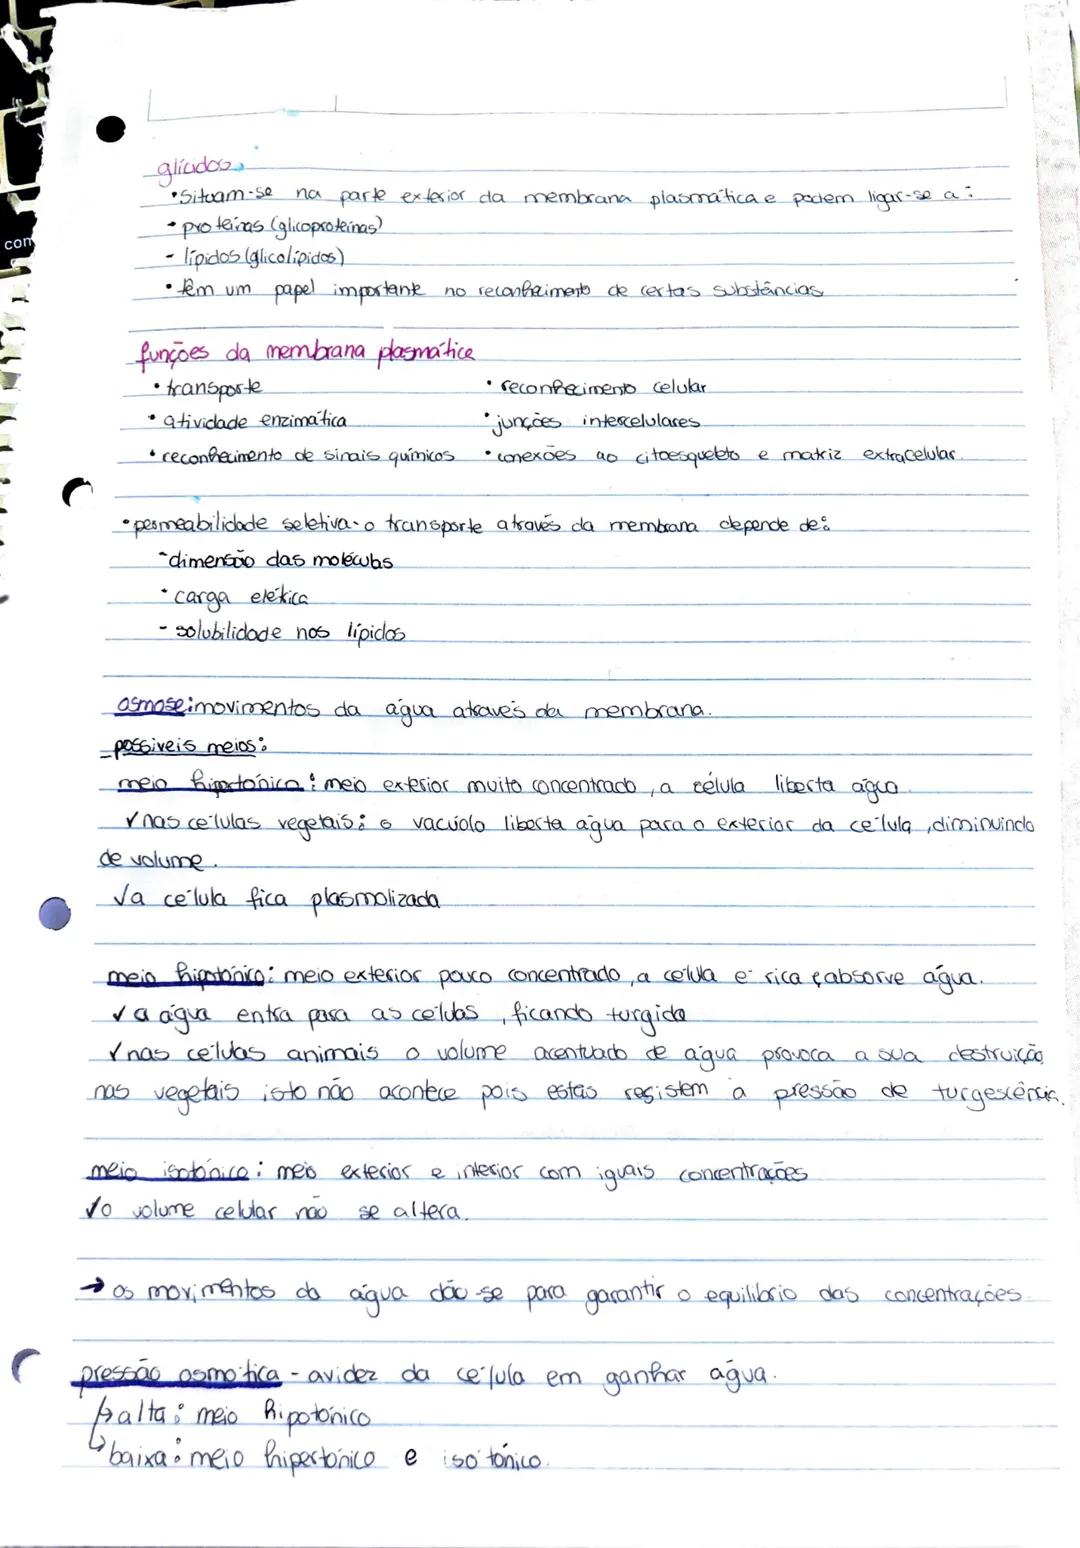 con
glícidos
•Situam-se na parte exterior da membrana plasmática e podem ligar-se a:
- proteínas (glicoproteínas)
- lípidos (glicolípidos)
• têm um papel importante no reconhecimento de certas substâncias
funções da membrana plasmática
• transporte • reconhecimento celular
• atividade enzimática • junções intercelulares
• reconhecimento de sinais químicos • conexões ao citoesqueleto e matriz extracelular.
• permeabilidade seletiva - o transporte através da membrana depende de:
- dimensão das moléculas
- carga elétrica
- solubilidade nos lípidos
osmose: movimentos da água através da membrana.
possíveis meios:
meio hipertónico: meio exterior muito concentrado, a célula liberta água.
√ nas células vegetais: o vacúolo liberta água para o exterior da célula, diminuindo
de volume.
√a célula fica plasmolizada
meio hipotónico: meio exterior pouco concentrado, a célula é rica e absorve água.
√ a água entra para as células, ficando turgida
√ nas células animais o volume acentuado de água provoca a sua destruição,
nas vegetais isto não acontece pois estas resistem à pressão de turgescência.
meio isotónico: meio exterior e interior com iguais concentrações
√o volume celular não se altera.
→ os movimentos da água dão-se para garantir o equilibrio das concentrações.
pressão osmótica - avidez da célula em ganhar água.
↳ alta: meio hipotónico
↳ baixa: meio hipertónico e isotónico.